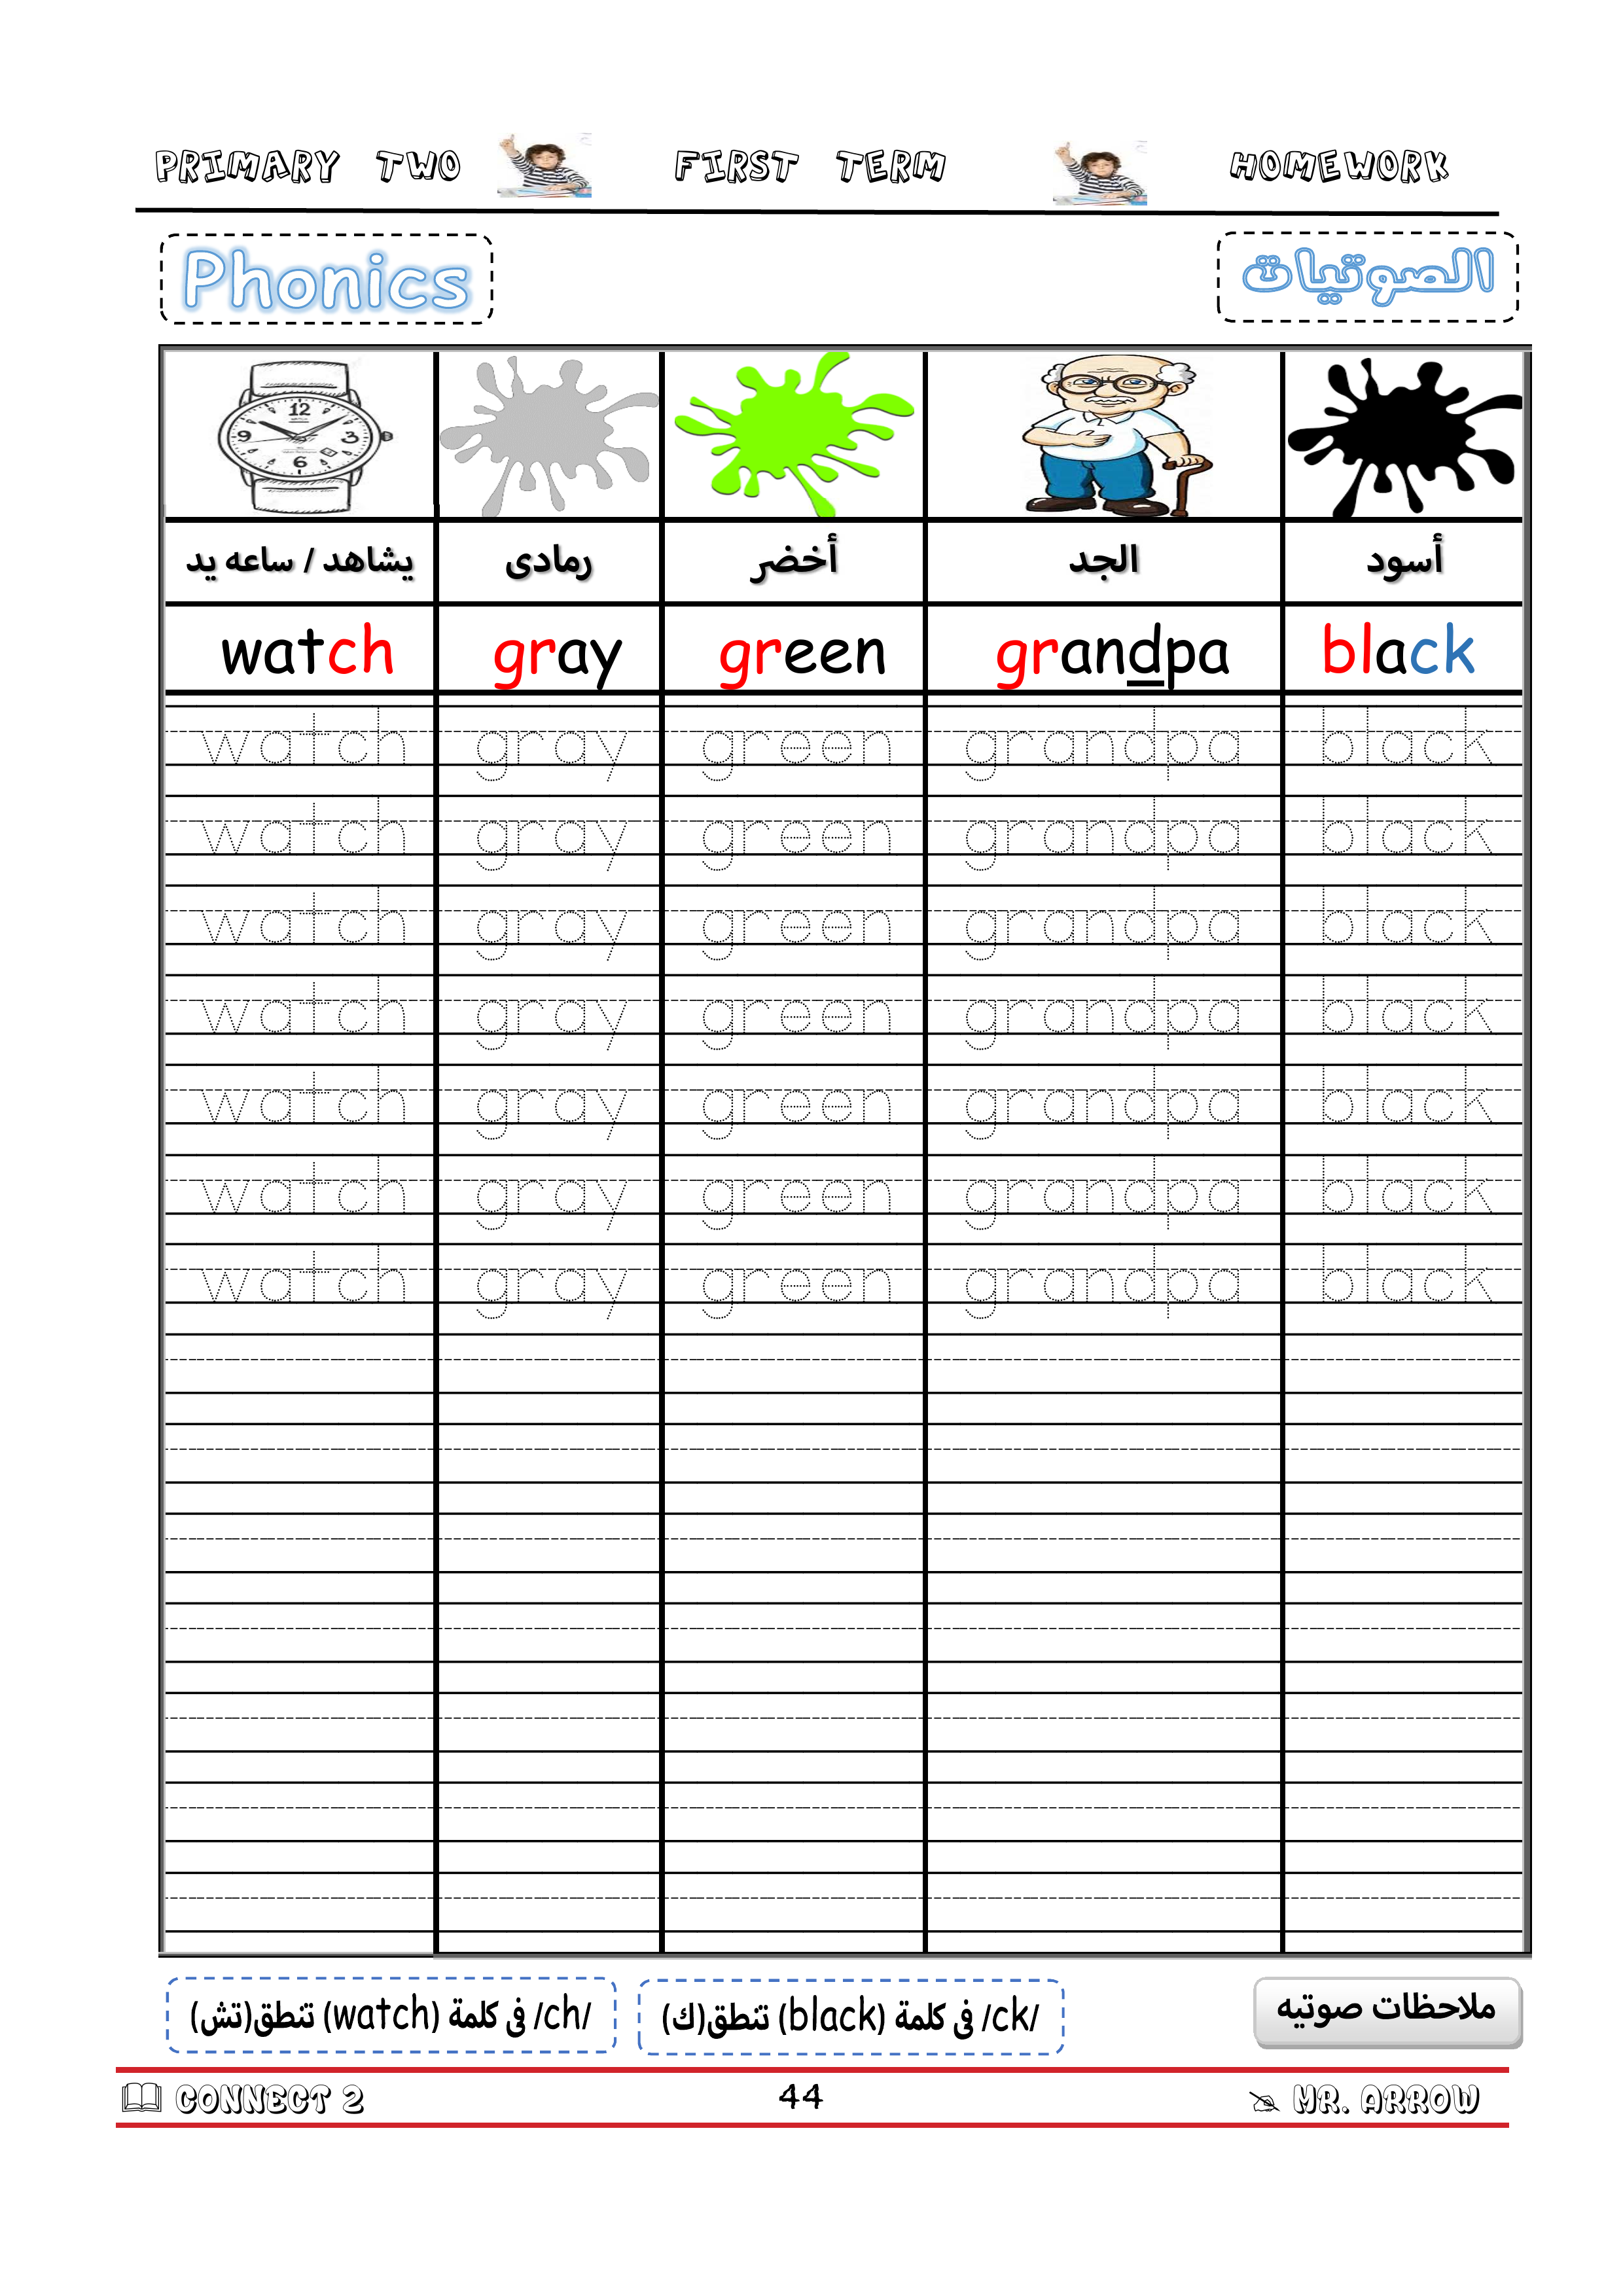 PRIMARY TWO FIRST TERM HOMEWORK
Phonics الصوتيات
12
9 3
6
يشاهد / ساعه يد رمادى أخضر الجد أسود
watch gray green grandpa black
watch gray green grandpa black
watch gray green grandpa black
watch gray green grandpa black
watch gray green grandpa black
watch gray green grandpa black
watch gray green grandpa black
watch gray green grandpa black
ملاحظات صوتيه
/ck/ فى كلمة (black) تنطق(ك)
/ch/ فى كلمة (watch) تنطق(تش)
CONNECT 2 44 MR. ARROW